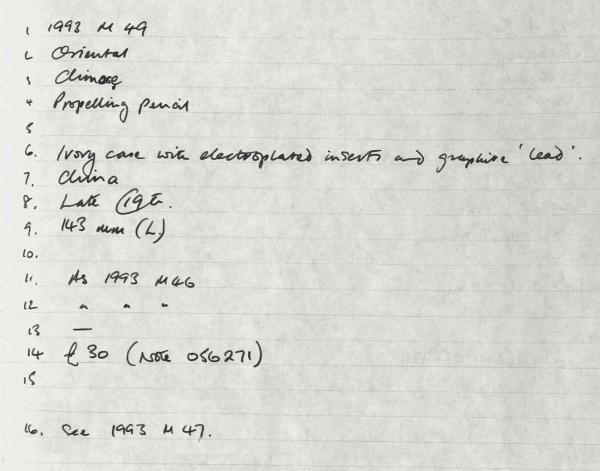 1 1993 M 49
2 Oriental
3 Chinese
4 Propelling pencil
5
6. Ivory case with electroplated inserts and graphite 'lead'.
7. China
8. Late C19th.
9. 143 mm (L)
10.
11. As 1993 M46
12 " " "
13 —
14 £30 (Note 056271)
15
16. See 1993 M 47.